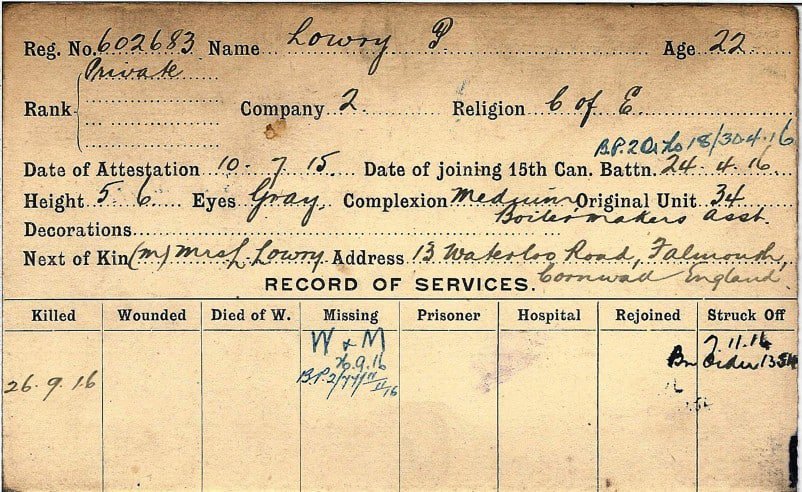 Reg. No. 602683 Name Lowry P Age 22
Private
Rank Company 2 Religion C of E.
B.P. 2 18/30.4.16
Date of Attestation 10-7 15. Date of joining 15th Can. Battn. 24.4.16.
Height 5 6 Eyes Gray Complexion Medium Original Unit 34
Decorations Boilermakers Asst.
Next of Kin (m) Mrs L Lowry Address 13 Waterloo Road, Falmouth,
Cornwall England.
RECORD OF SERVICES.
Killed Wounded Died of W. Missing Prisoner Hospital Rejoined Struck Off
W & M 7.11.16
26.9.16 Bn Order 1354
26.9.16 B.P.2